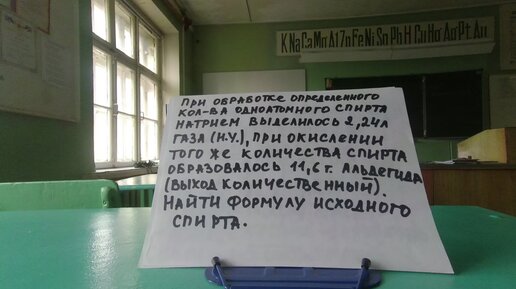 K Na Ca Mg Al Zn Fe Ni Sn Pb H Cu Hg Ag Pt Au
ПРИ ОБРАБОТКЕ ОПРЕДЕЛЕННОГО
КОЛ-ВА ОДНОАТОМНОГО СПИРТА
НАТРИЕМ ВЫДЕЛИЛОСЬ 2,24Л
ГАЗА (Н.У.), ПРИ ОКИСЛЕНИИ
ТОГО ЖЕ КОЛИЧЕСТВА СПИРТА
ОБРАЗОВАЛОСЬ 11,6 Г. АЛЬДЕГИДА
(ВЫХОД КОЛИЧЕСТВЕННЫЙ).
НАЙТИ ФОРМУЛУ ИСХОДНОГО
СПИРТА.